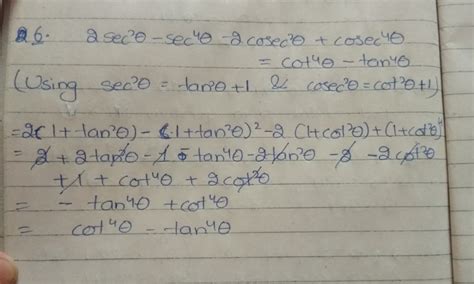 26. 2sec²θ - sec⁴θ - 2cosec²θ + cosec⁴θ
= cot⁴θ - tan⁴θ
(Using sec²θ = tan²θ + 1 & cosec²θ = cot²θ + 1)
= 2(1 + tan²θ) - (1 + tan²θ)² - 2 (1 + cot²θ) + (1 + cot²θ)²
= 2 + 2tan²θ - 1 - tan⁴θ - 2tan²θ - 2 - 2cot²θ
+ 1 + cot⁴θ + 2cot²θ
= - tan⁴θ + cot⁴θ
= cot⁴θ - tan⁴θ